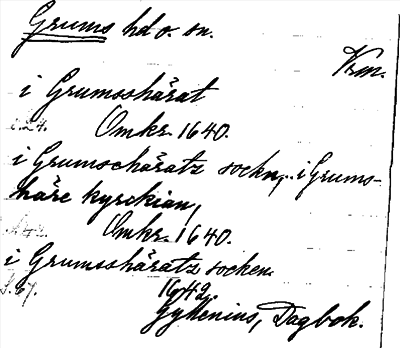 Grums hd o. sn.
Vrm.
i Grumsshärat
s. 24. Omkr. 1640.
i Grumschäratz sockn, i Grums-
häre kyrckian,
Omkr. 1640.
i Grumsshäratz socken
S. 67. 1642.
Gyllenius, Dagbok.